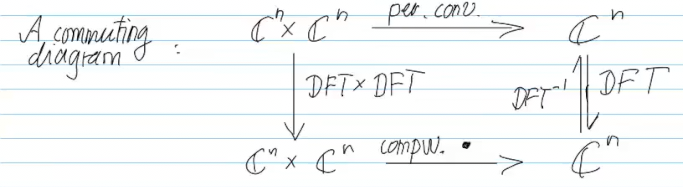 A commuting diagram :
ℂⁿ × ℂⁿ per. conv. ℂⁿ
DFT × DFT DFT⁻¹ DFT
ℂⁿ × ℂⁿ compw. • ℂⁿ